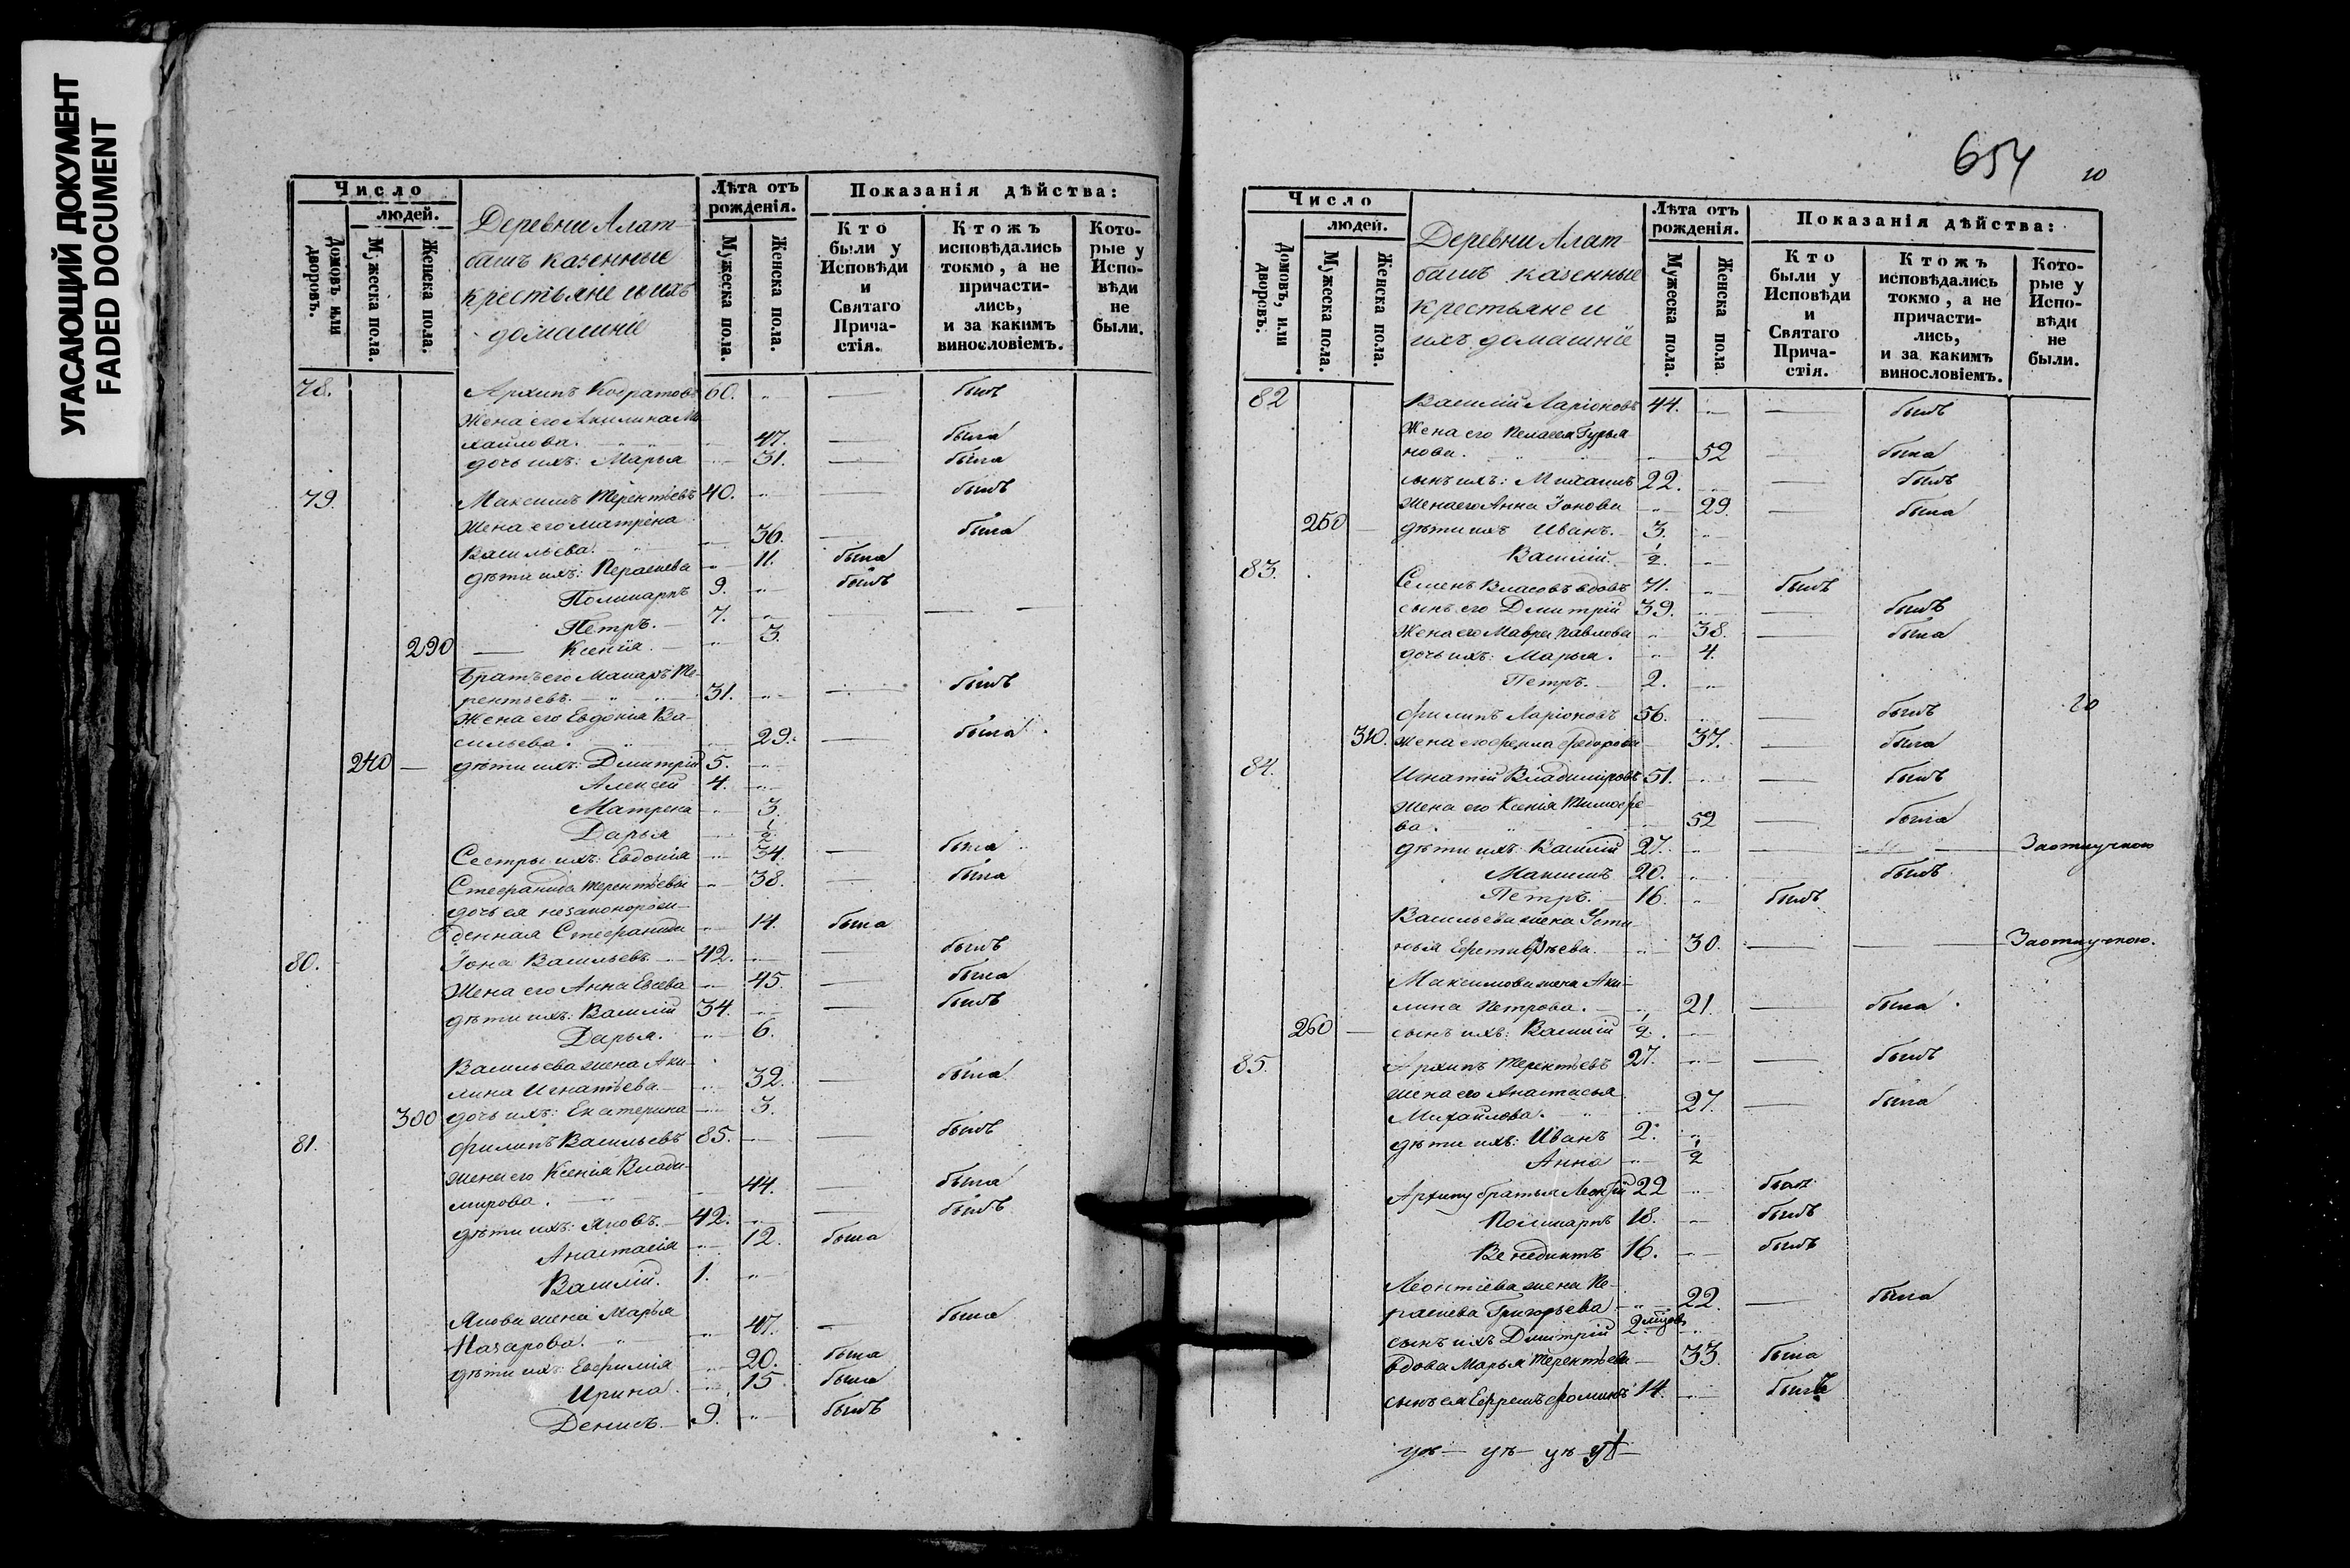 УГАСАЮЩИЙ ДОКУМЕНТ
FADED DOCUMENT
Число
людей.
Домовъ или дворовъ.
Мужеска пола.
Женска пола.
Деревни Алат-
башъ казенные
крестьяне и ихъ
домашніе
Лѣта отъ рожденія.
Мужеска пола.
Женска пола.
Показанія дѣйства:
Кто были у Исповѣди и Святаго Прича- стія.
Ктожъ исповѣдались токмо, а не причасти- лись, и за какимъ винословіемъ.
Кото- рые у Испо- вѣди не были.
78. Архипъ 60. — былъ
Жена его Акилина Ми
хайлова. 47. — была
дочь ихъ: Марья 31. — была
79. Максимъ Терентьевъ 40. — былъ
Жена его Матрена
Васильева. 36. — была
дѣти ихъ: 11. была
Поликарпъ 9. былъ
Петръ. 7. — — —
290 — Ксенія. 3.
Братъ его Макаръ Те-
рентьевъ. 31. — былъ
Жена его Евдокія Ва-
сильева. 29. — была
240 — дѣти ихъ: Дмитрій 5.
Алексей 4.
Матрена 3.
Дарья 1/2
Сестры ихъ: Евдокія 34. — была
Стефанида Терентьевы 38. — была
дочь ея незаконорож-
денная Стефанида 14. была
80. Іона Васильевъ 42. — былъ
Жена его Анна Евсева 45. — была
дѣти ихъ: Василій 34. — былъ
Дарья. 6.
Васильева жена Аки-
лина Игнатьева 32. — была
300 дочь ихъ: Екатерина 3.
81. Филипъ Васильевъ 85. — былъ
Жена его Ксенія Влади-
мирова. 44. — была
дѣти ихъ: Яковъ. 42. — былъ
Анастасія 12. была
Василій. 1.
Якова жена Марья
Назарова. 47. — была
дѣти ихъ: Евфимія 20. была
Ирина. 15 была
Денисъ 9. былъ
654
10
Число
людей.
Домовъ, или дворовъ.
Мужеска пола.
Женска пола.
Деревни Алат-
башъ казенные
крестьяне и
ихъ домашніе
Лѣта отъ рожденія.
Мужеска пола.
Женска пола
Показанія дѣйства:
Кто были у Исповѣди и Святаго Прича- стія.
Ктожъ исповѣдались токмо, а не причасти- лись, и за какимъ винословіемъ.
Кото- рые у Испо- вѣди не были.
82 Василій Ларіоновъ 44. — былъ
Жена его Пелагея Гурья
нова. 52 — была
сынъ ихъ: Михаилъ 22. — былъ
Жена его Анна Іонова 29. — была
250 — дѣти ихъ Иванъ. 3.
Василій. 1/2.
83. Семенъ Власовъ вдовъ 71. былъ
сынъ его Дмитрій 39. — былъ
Жена его Мавра Павлова 38. — была
дочь ихъ: Марья. 4.
Петръ. 2.
Филипъ Ларіоновъ 56. — былъ 20
310. Жена его Федорова 37. — была
84. Игнатій Владиміровъ 51. — былъ
Жена его Ксенія Тимофе-
ва. 52 — была
дѣти ихъ: Василій 27. — — Заотлучкою
Максимъ 20. былъ
Петръ. 16. былъ
Васильева жена Усти
нья 30. — — Заотлучкою.
Максимова жена Аки-
лина Петрова. 21. — была
260 — сынъ ихъ: Василій 1/2.
85. Архипъ Терентьевъ 27. — былъ
Жена его Анастасья
Михайлова. 27. — была
дѣти ихъ: Иванъ 2.
Анна 1/2
Архипу братья Леонтій 22 былъ
Поликарпъ 18. былъ
Венедиктъ 16. былъ
Леонтіева жена
Григорьева 22. — была
сынъ ихъ Дмитрій 2
вдова Марья Терентьева 33. была
сынъ ея Ефремъ Фоминъ 14. былъ